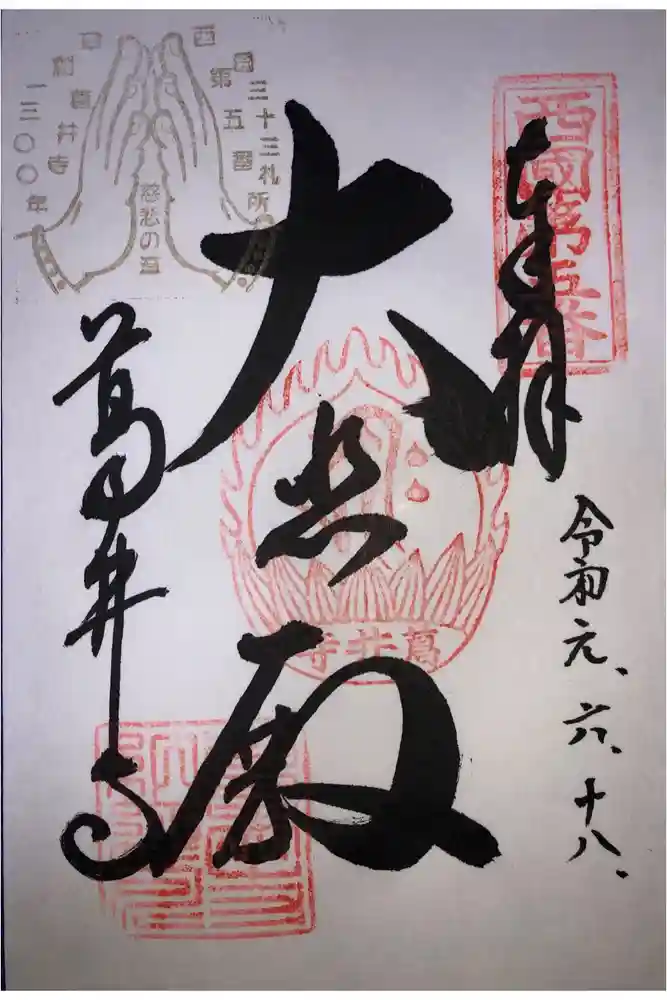 西國第五番
奉拝
令和元、六、十八、
大悲殿
葛井寺
葛井寺
西国三十三札所
第五番
慈悲の道
葛井寺
一三〇〇年